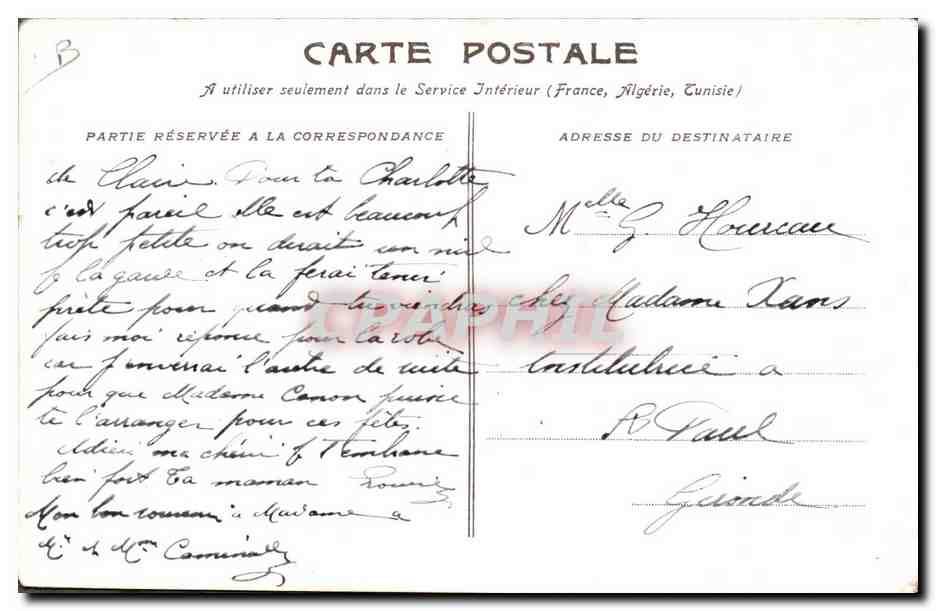 B
CARTE POSTALE
A utiliser seulement dans le Service Intérieur (France, Algérie, Tunisie)
PARTIE RÉSERVÉE A LA CORRESPONDANCE
de Claire. Pour ta Charlotte
c'est pareil elle est beaucoup
trop petite on dirait un
je la et la ferai tenir
prête pour quand tu viendras
fais moi réponse pour la robe
car j'enverrai l'autre de suite
pour que Madame Canon puisse
te l'arranger pour ces fêtes.
Adieu ma chérie je t'embrasse
bien fort Ta maman
Mon bon souvenir à Madame a
Mr et Mme
ADRESSE DU DESTINATAIRE
Melle G. Hourcau
chez Madame Xans
Institutrice a
St Paul
Gironde
CPAPHIL